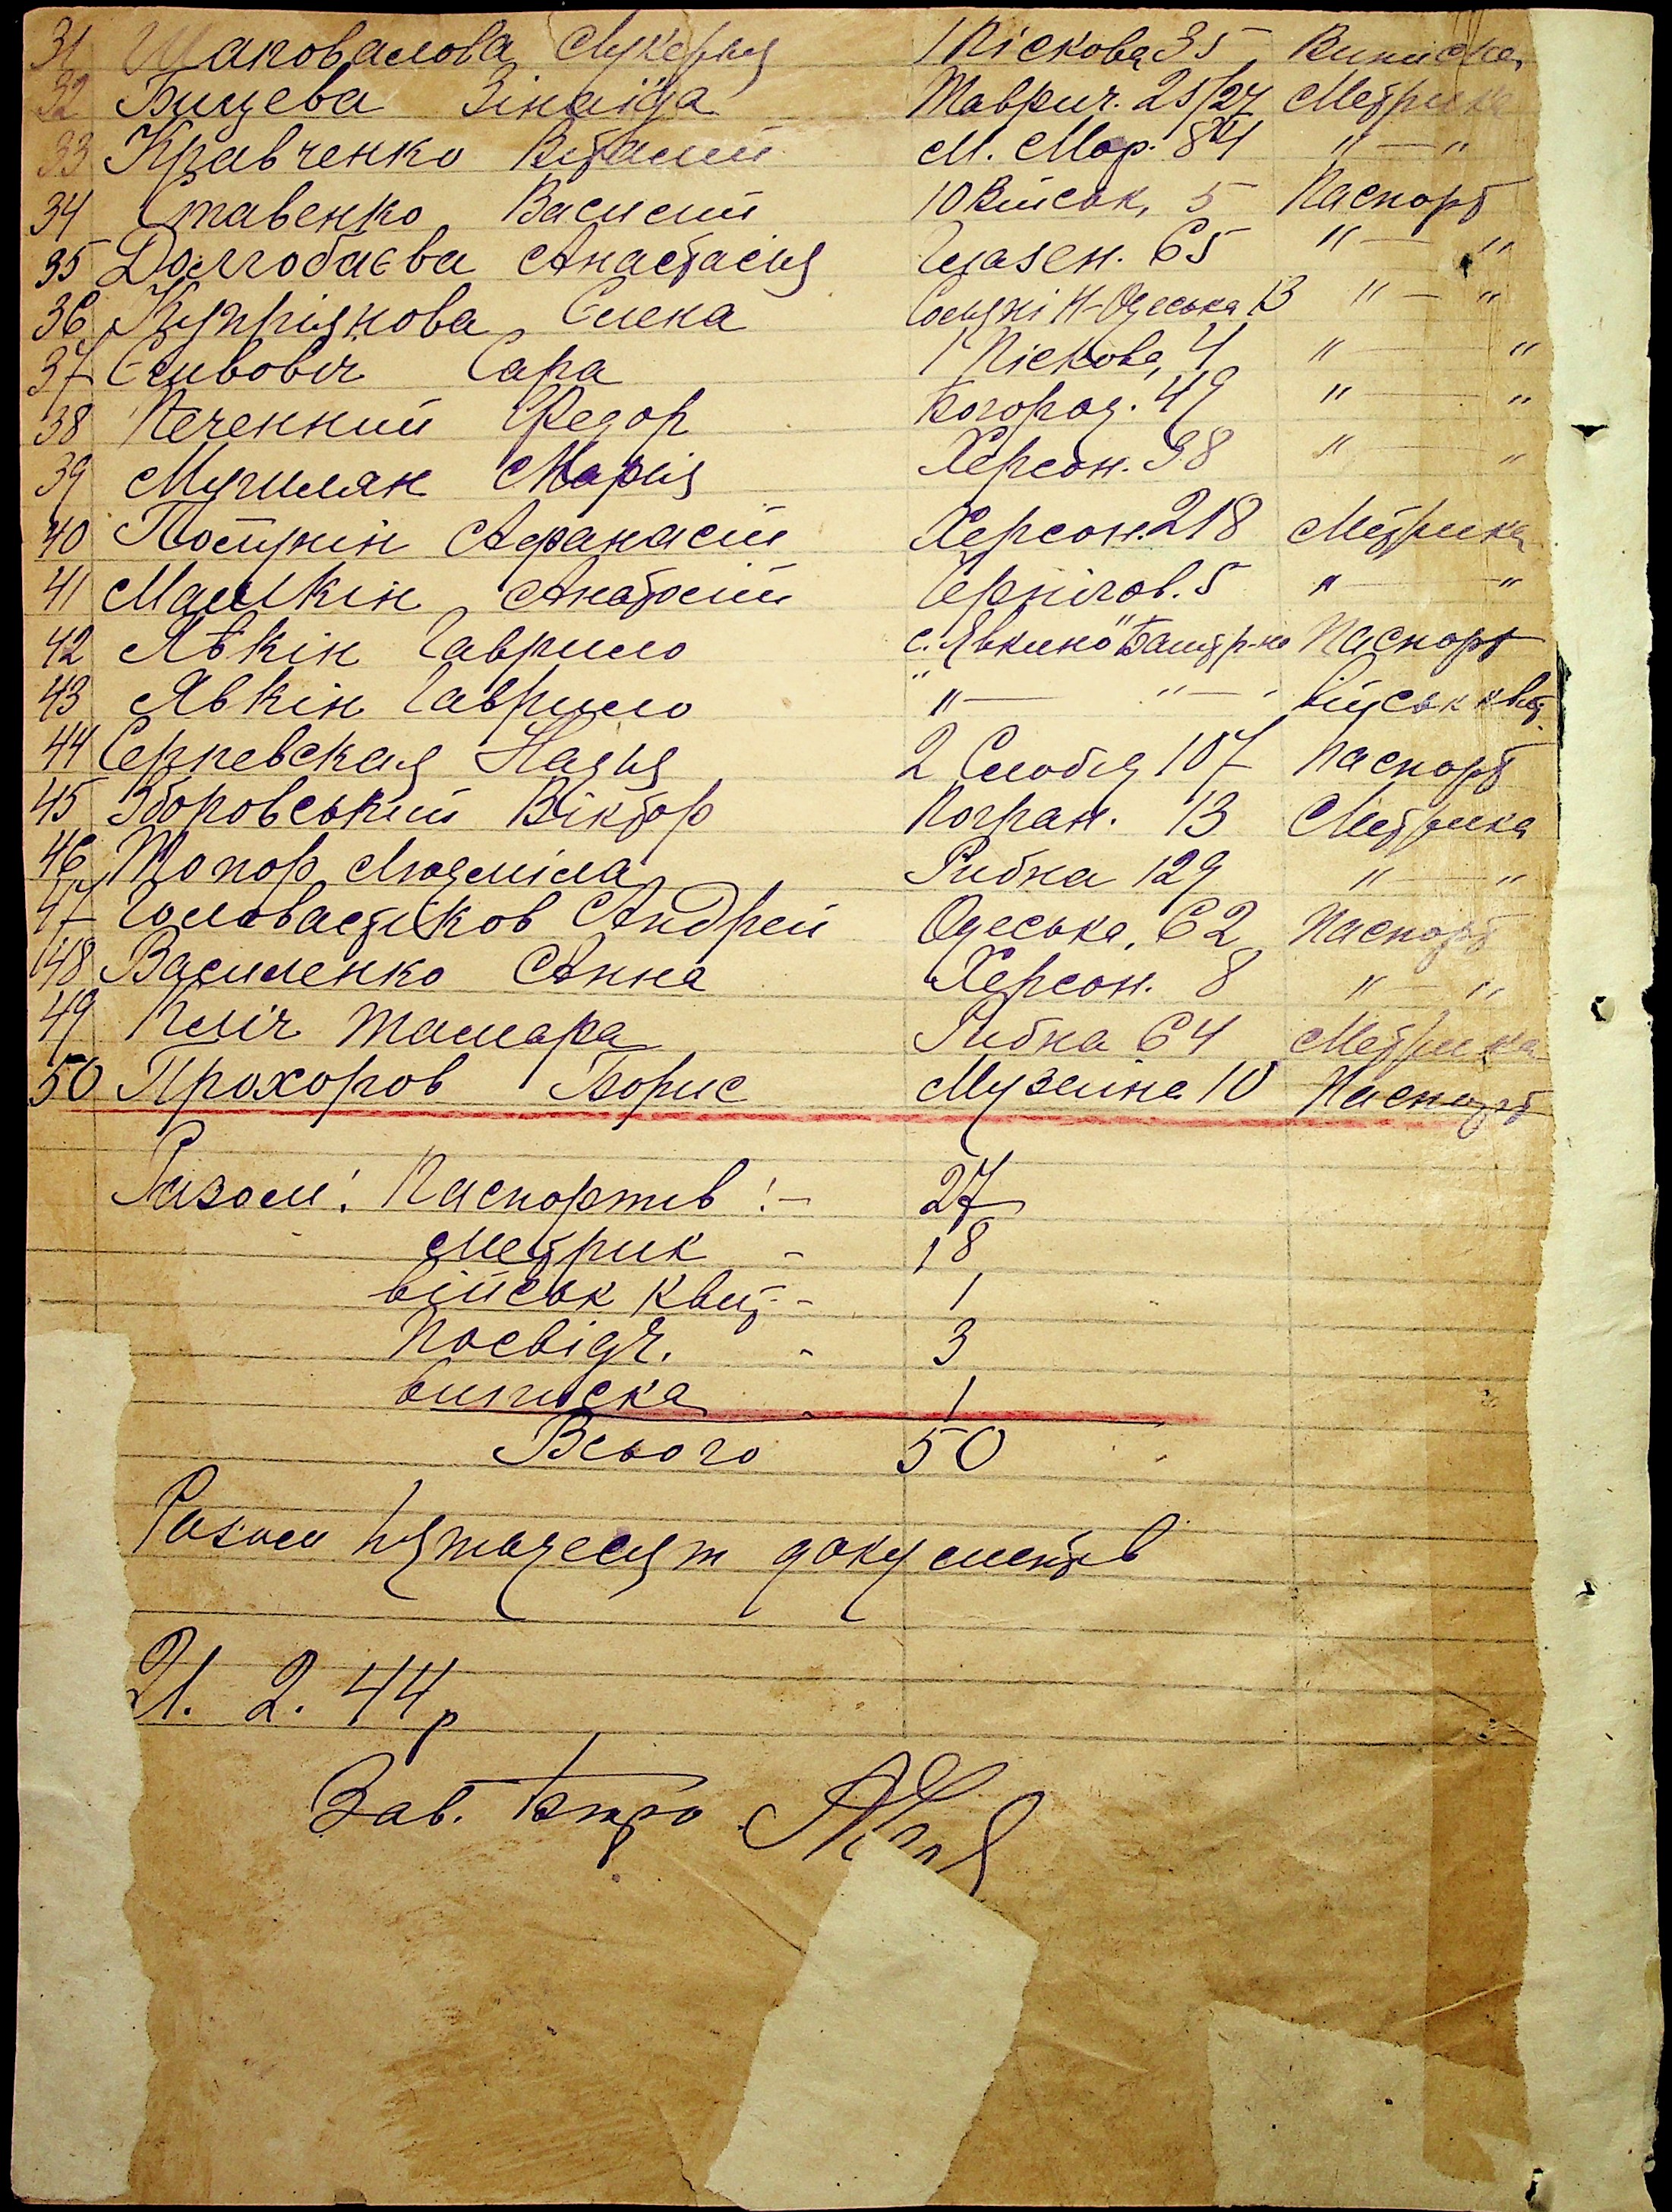 31 Шаповалова Лукерия 1 Піскова 35 Виписка
32 Бищева Зінаіда Таврич. 25/27 Метрика
33 Кравченко Віталий М. Мор. 84 " — "
34 Ставенко Василий 10 Військ, 5 Паспорт
35 Долгобаєва Анастасия 65 " — "
36 Купріянова Єлена Н-Одеська 13 " — "
37 Сара 1 Піскова, 4 " — "
38 Печенний Федор Богород. 49 " — "
39 Мугиляк Марія Херсон. 98 " — "
40 Афанасій Херсон. 218 Метрика
41 Машкін Анатолій Чернігов. 5 " — "
42 Явкін Гаврило с. "Явкино" Баштр-ка Паспорт
43 Явкін Гаврило " — " — " військ квит.
44 Серпевская Надия 2 Слобід 107 Паспорт
45 Зборовський Віктор Погран. 13 Метрика
46 Топор Людміла Рибна 129 " — "
47 Головастіков Андрей Одеська, 62 Паспорт
48 Василенко Анна Херсон. 8 " — "
49 Кліч Тамара Рибна 64 Метрика
50 Прохоров Борис Музейна 10 Паспорт
Разом: Паспортів :- 27
Метрик - 18
військ квит - 1
Посвідч. - 3
виписка - 1
Всього 50
Разом пятьдесят документів
21. 2. 44 р
Зав. Бюро